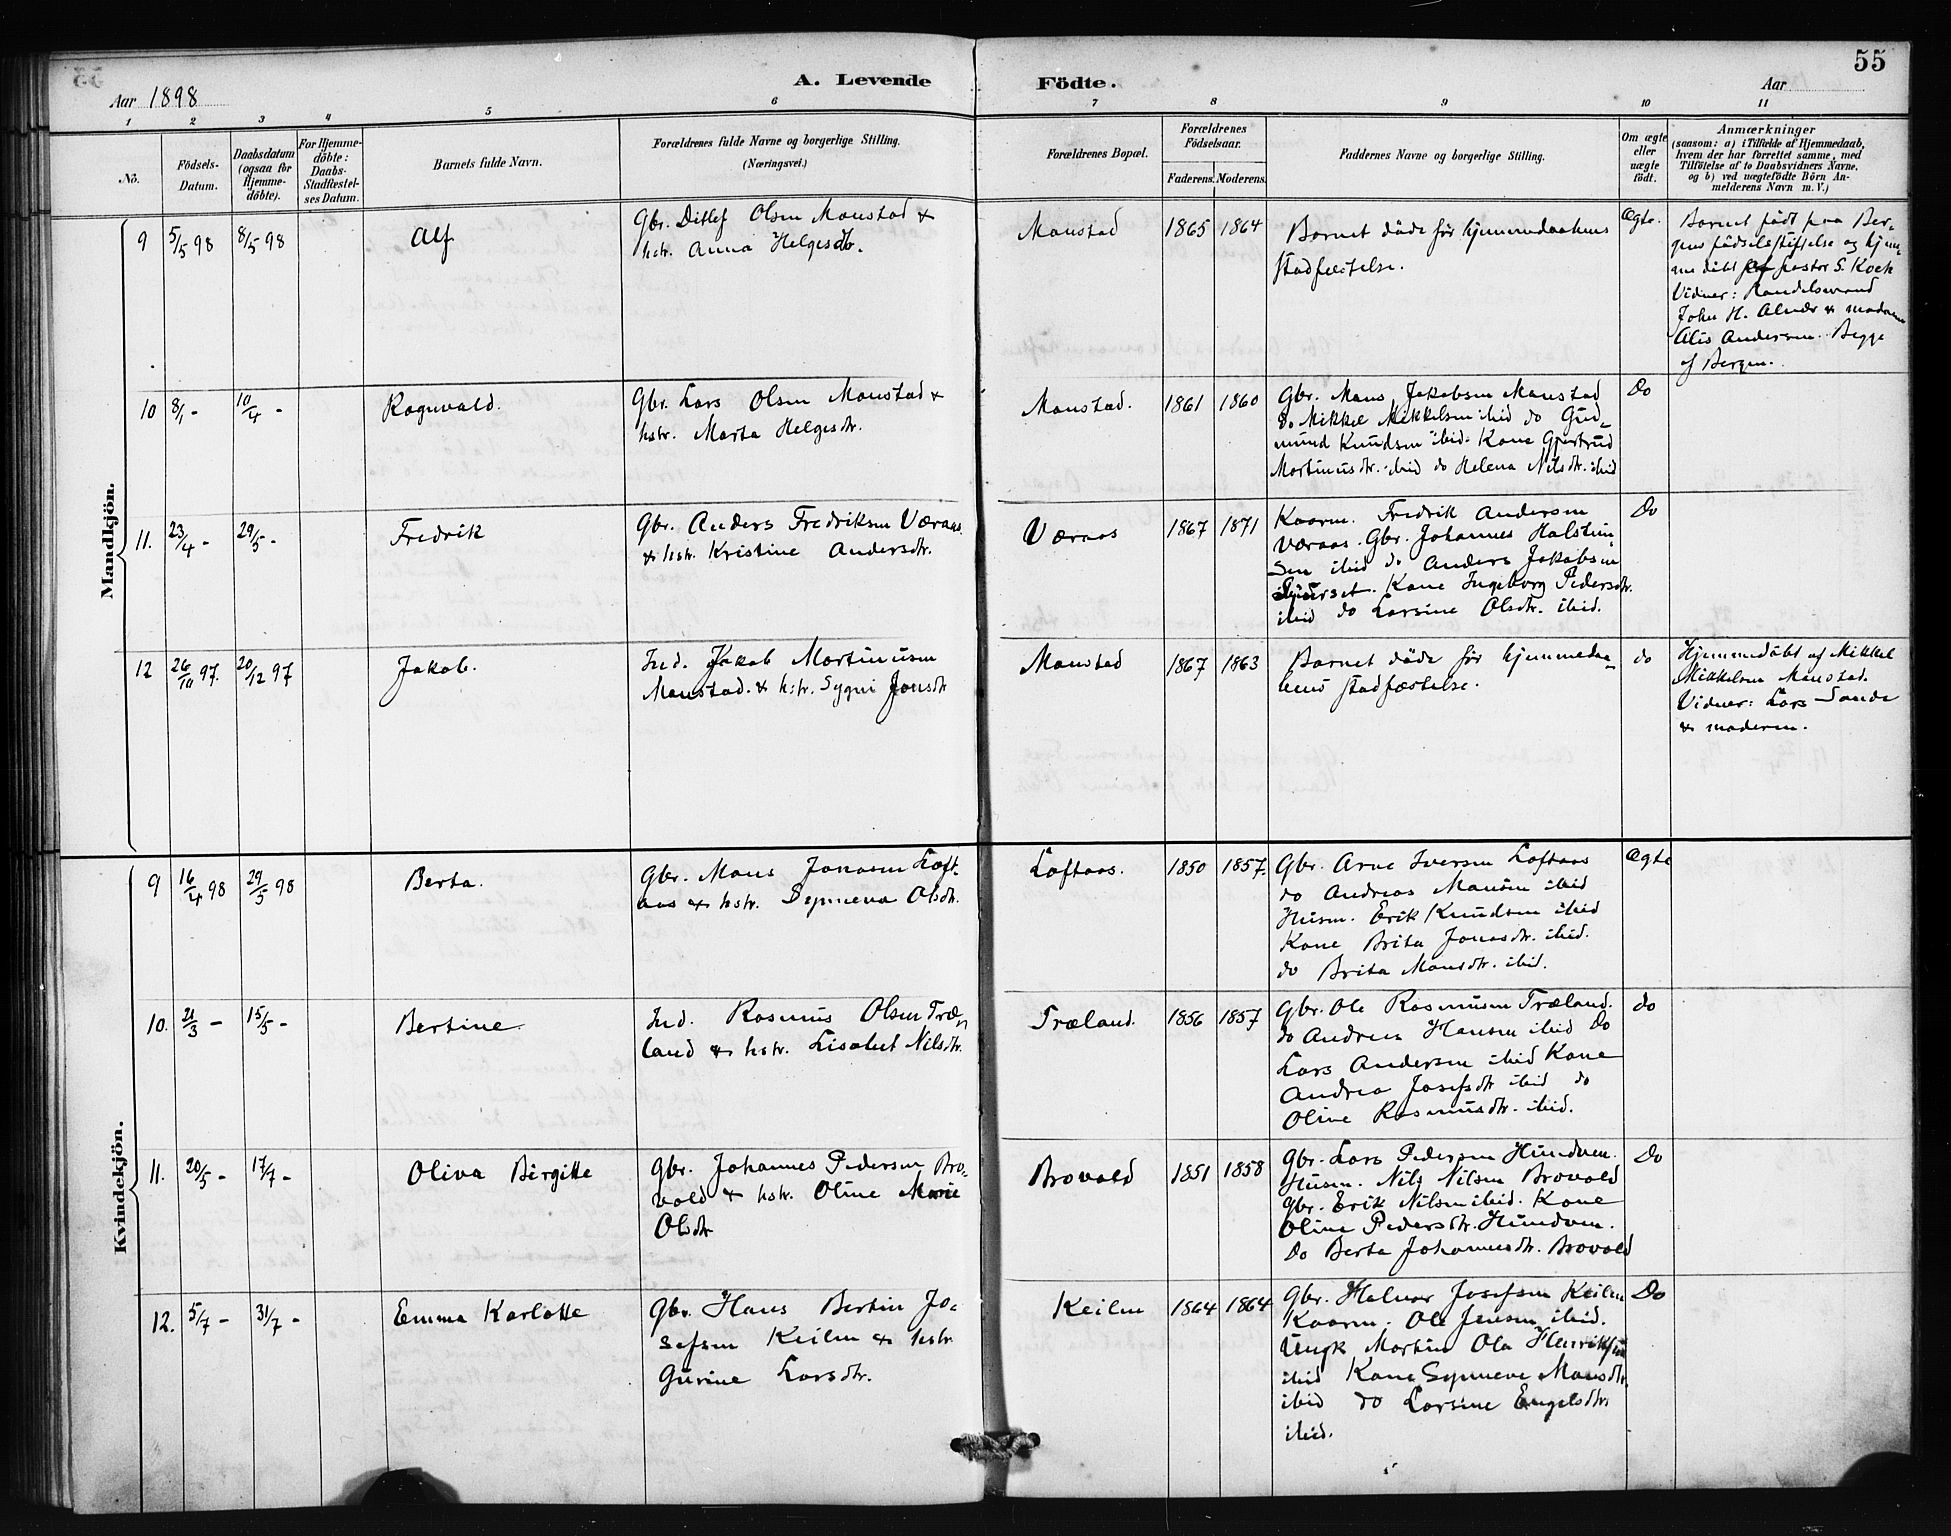 55
Aar 1898
A. Levende Födte.
Aar
1 2 3 4 5 6 7 8 9 10 11
No.
Födsels-
Datum.
Daabsdatum
(ogsaa for
Hjemme-
döbte).
For Hjemme-
döbte:
Daabs-
Stadfæstel-
ses Datum.
Barnets fulde Navn.
Forældrenes fulde Navne og borgerlige Stilling.
(Næringsvei.)
Forældrenes Bopæl.
Forældrenes
Födselsaar.
Faderens. Moderens.
Faddernes Navne og borgerlige Stilling.
Om ægte
eller
uægte
födt.
Anmærkninger
(saasom: a) i Tilfælde af Hjemmedaab,
hvem der har forrettet samme, med
Tilföielse af to Daabsvidners Navne,
og b) ved uægtefödte Börn An-
melderens Navn m. V.)
Mandkjön.
9
5/5 98
8/5 98
Alf
Gbr. Ditlef Olsen Monstad &
hstr. Anna Helgesdtr.
Monstad
1865
1864
Barnet döde för hjemmedaabens
stadfæstelse.
Ægte.
Barnet födt paa Ber-
gens födselsstiftelse og hjem-
me döbt af pastor S. Koch
Vidner: Handelsmand
John H. Alvær & madame
Alis Andersen. Begge
af Bergen.
10
8/1 -
10/4 -
Ragnvald.
Gbr. Lars Olsen Monstad &
hstr. Marta Helgesdtr.
Monstad.
1861
1860
Gbr. Mons Jakobsen Monstad
do Mikkel Mikkelsen ibid do Gud-
mund Knudsen ibid. Kone Gjertrud
Martinusdtr. ibid do Helena Nilsdtr. ibid
Do
11.
23/4 -
29/5 -
Fredrik
Gbr. Anders Fredriksen Væraas
& hstr. Kristine Andersdtr.
Væraas
1867
1871
Kaarm. Fredrik Andersen
Væraas. Gbr. Johannes Halstein-
sen ibid do Anders Jakobsen
Kone Ingeborg Pedersdtr.
ibid do Larsine Olsdtr. ibid.
Do
12
26/10 97.
20/12 97
Jakob.
Ind. Jakob Martinusen
Monstad. & hstr. Sygni Jonsdtr
Monstad
1867
1863
Barnet döde för hjemmedaa-
bens stadfæstelse.
do
Hjemmedöbt af Mikkel
Mikkelsen Monstad.
Vidner: Lars Sande
& moderen.
Kvindekjön.
9
16/4 98
29/5 98
Berta.
Gbr. Mons Jonasen Loft-
aas & hstr. Synneva Olsdtr.
Loftaas.
1850
1857.
Gbr. Arne Iversen Loftaas
do Andreas Monsen ibid
Husm. Erik Knudsen ibid
Kone Brita Jonasdtr. ibid.
do Brita Monsdtr. ibid.
Ægte
10.
21/3 -
15/5 -
Bertine.
Ind. Rasmus Olsen Træ-
land & hstr. Lisabet Nilsdtr.
Træland.
1856
1857
Gbr. Ole Rasmusen Træland.
do Andreas Hansen ibid Do
Lars Andersen ibid Kone
Andrea Josefsdtr ibid do
Oline Rasmusdtr. ibid.
do
11.
20/5 -
17/7 -
Oliva Birgitte
Gbr. Johannes Pedersen Bro-
vold & hstr. Oline Marie
Olsdtr
Brovold
1851
1858
Gbr. Lars Pedersen Hundven.
Husm. Nils Nilsen Brovold
Gbr. Erik Nilsen ibid. Kone
Oline Pedersdtr. Hundven.
Do Berta Johannesdtr. Brovold
Do
12.
5/7 -
31/7 -
Emma Karlotte
Gbr. Hans Bertin Jo-
sefsen Keilen & hstr
Gurine Larsdtr.
Keilen
1864
1864
Gbr. Halvor Josefsen Keilen
Kaarm. Ole Jensen ibid.
Ungk Martin Ola Henriksen
ibid Kone Synneve Monsdtr.
ibid do Larsine Engelsdtr
ibid.
Do